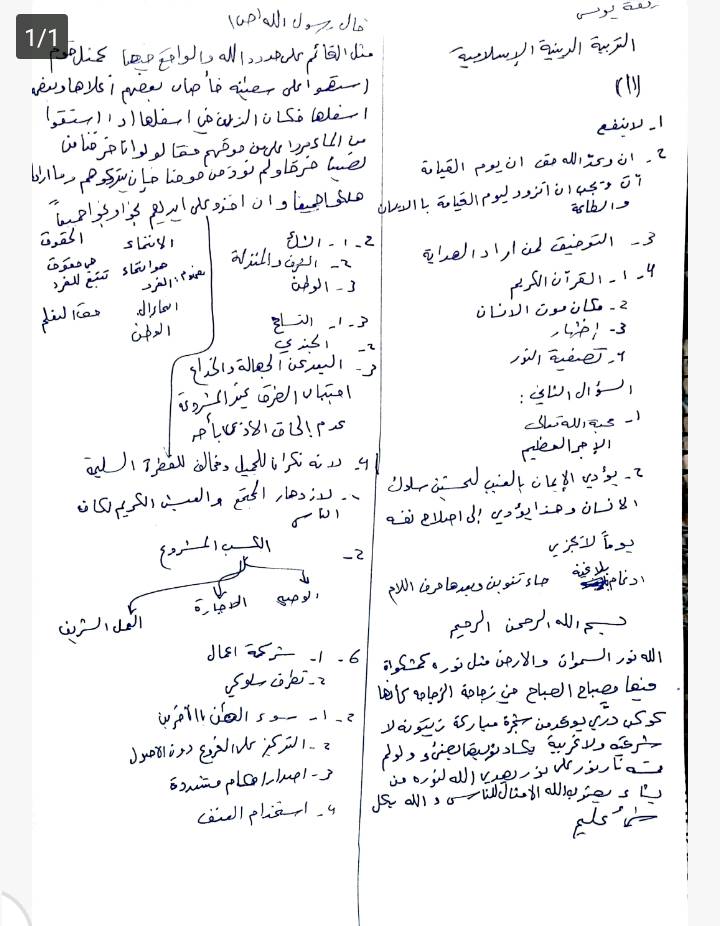 1/1
التربية الدينية الإسلامية
(1)
1- لا ينفع
2- ان وعد الله حق ان يوم القيامة
آت و يجب ان أتزود ليوم القيامة بالايمان
والطاعة
3- التوفيق لمن اراد الهداية
4- 1- القرآن الكريم
2- مكان موت الانسان
3- إظهار
4- تصفية النور
السؤال الثاني:
1- محبة الله تعالى
الأجر العظيم
2- يؤدي الإيمان بالغيب لتحسين سلوك
الانسان وهذا يؤدي إلى اصلاح نفسه
يوماً لا يجزي
ادغام بلا غنة جاء تنوين وبعدها حرف اللام
بسم الله الرحمن الرحيم
الله نور السموات والارض مثل نوره كمشكواة
فيها مصباح المصباح في زجاجة الزجاجة كأنها
كوكب دري يوقد من شجرة مباركة زيتونة لا
شرقية ولا غربية يكاد زيتها يضيء ولو لم
تمسسه نار نور على نور يهدي الله لنوره من
يشاء ويضرب الله الامثال للناس و الله بكل
شيء عليم
قال رسول الله (ص)
مثل القائم على حدود الله والواقع فيها كمثل قوم
استهموا على سفينة فأصاب بعضهم أعلاها وبعضهم
اسفلها فكان الذين في اسفلها إذا استقوا
من الماء مروا على من فوقهم فقالوا لو انا خرقنا في
نصيبنا خرقا ولم نؤذ من فوقنا فإن يتركوهم وما ارادوا
هلكوا جميعا و ان اخذو على ايديهم نجوا ونجوا جميعاً
2- 1- الشك
2- الشرف والمنزلة
3- الوطن
الانتماء الحقوق
هو انتماء الفرد
الى الوطن
حق التعلم
3- 1- التسامح
2- الجندي
3- البعد عن الجهالة والخداع
اجتناب الطرق غير المشروعة
عدم إلحاق الأذى بأحد
4- لانه نكرانا للجميل و مخالف للفطرة السليمة
1- لازدهار المجتمع والعيش الكريم لكافة
الناس
2- الكسب المشروع
الوصية الاجارة العمل الشريف
6- 1- شركة اعمال
2- تطرف سلوكي
2- 1- سوء الظن بالآخرين
2- التركيز على الفروع دون الاصول
3- اصدار احكام مشددة
4- استخدام العنف